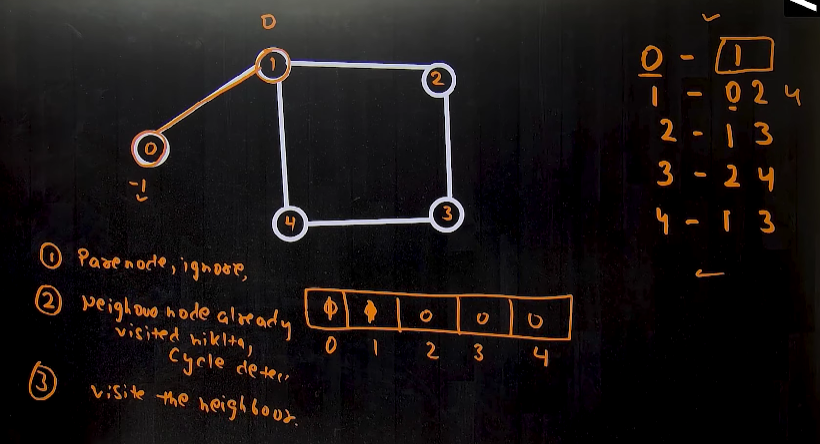 0
1
2
0
-1
4
3
0 - 1
1 - 0 2 4
2 - 1 3
3 - 2 4
4 - 1 3
① Parenode, ignore,
② Neighour node already
visited niklta,
Cycle detec.
③ visite the neighbour.
0 0 0
0 1 2 3 4